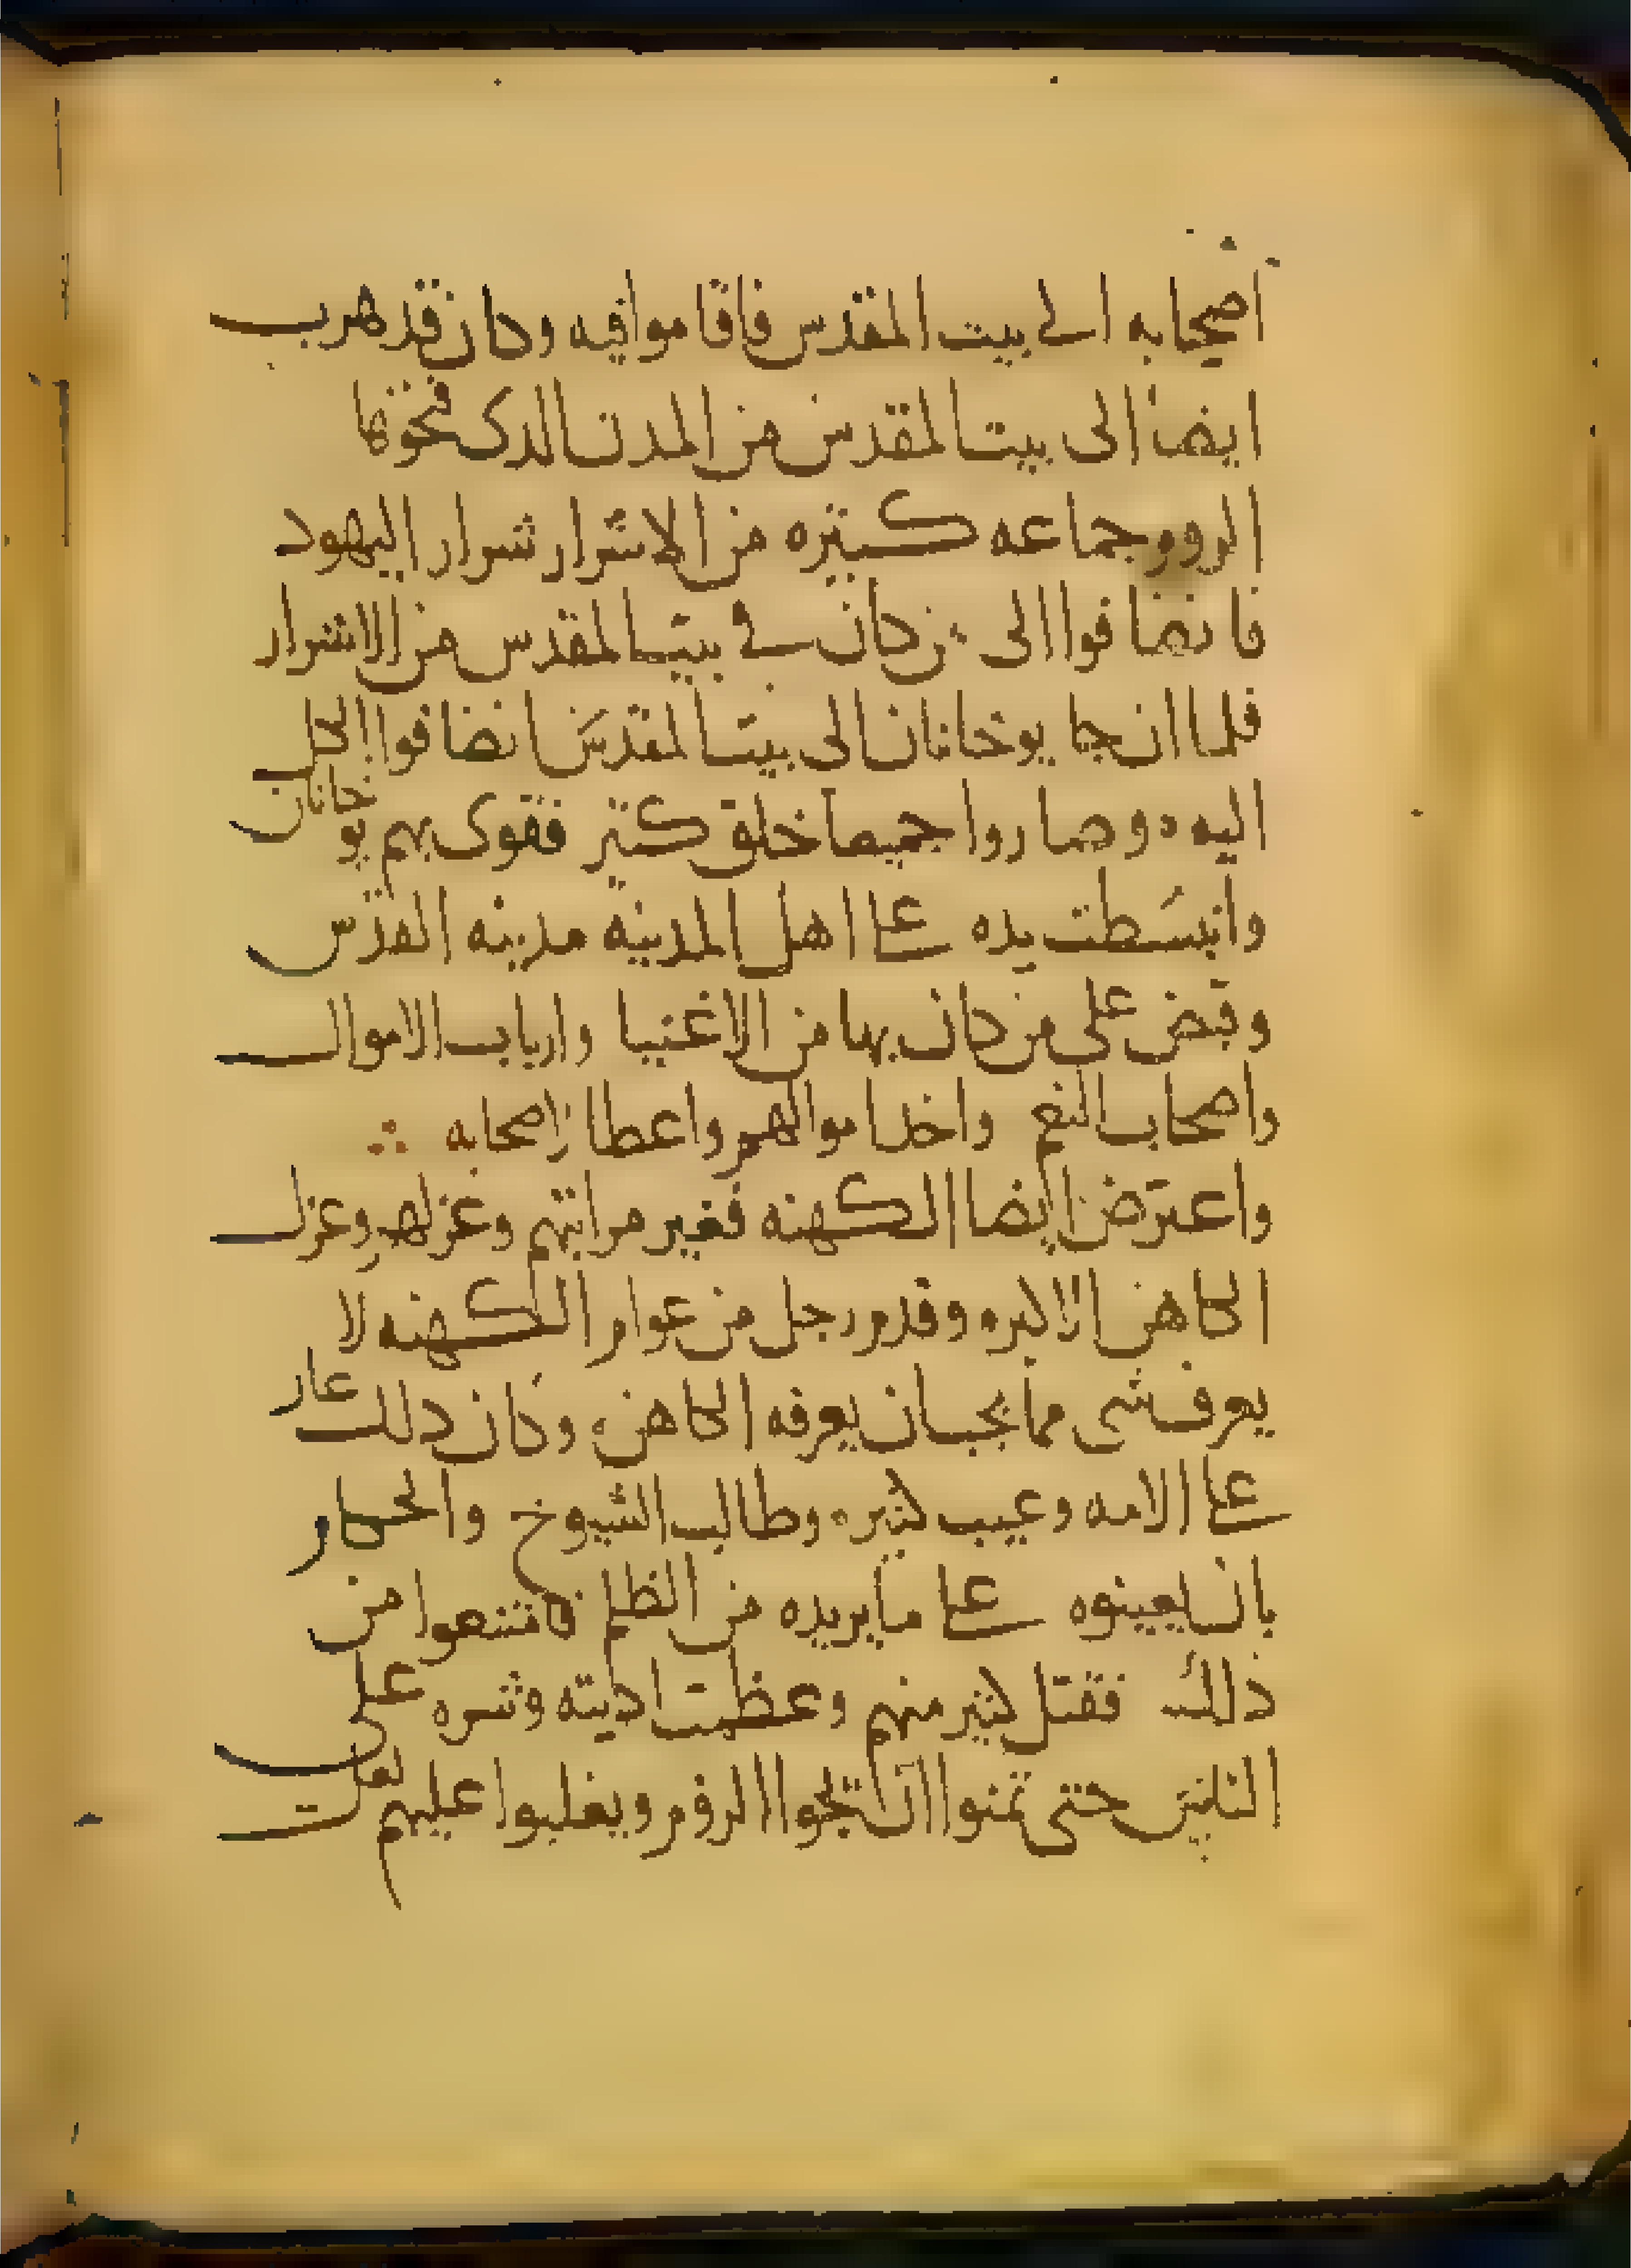 اصحابه الى بيت المقدس فاقاموا فيه وكان قد هرب
ايضا الى بيت المقدس من المدن الدى فتحوها
الروم جماعه كتيره من الاشرار شرار اليهود
فانضافوا الى من كان في بيت المقدس من الاشرار
فلما ان جا يوخانان الى بيت المقدس انضافوا الكل
اليه وصاروا جميعا خلق كتير فقوى بهم يوخانان
وانبسطت يده على اهل المدينه مدينه القدس
وقبض على من كان بها من الاغنيا وارباب الاموال
واصحاب النعم واخد اموالهم واعطا اصحابه
واعترض ايضا الكهنه فغير مراتبهم وعزلهم وعزل
الكاهن الاكبر وقدم رجل من عوام الكهنه لا
يعرف شى مما يجب ان يعرفه الكاهن وكان دلك عار
على الامه وعيب كتير وطالب الشيوخ والحكام
بان يعينوه على ما يريده من الظلم فامتنعوا من
ذلك فقتل كتير منهم وعظمت اديته وشره على
الناس حتى تمنوا ان تجوا الروم ويغلبوا عليهم